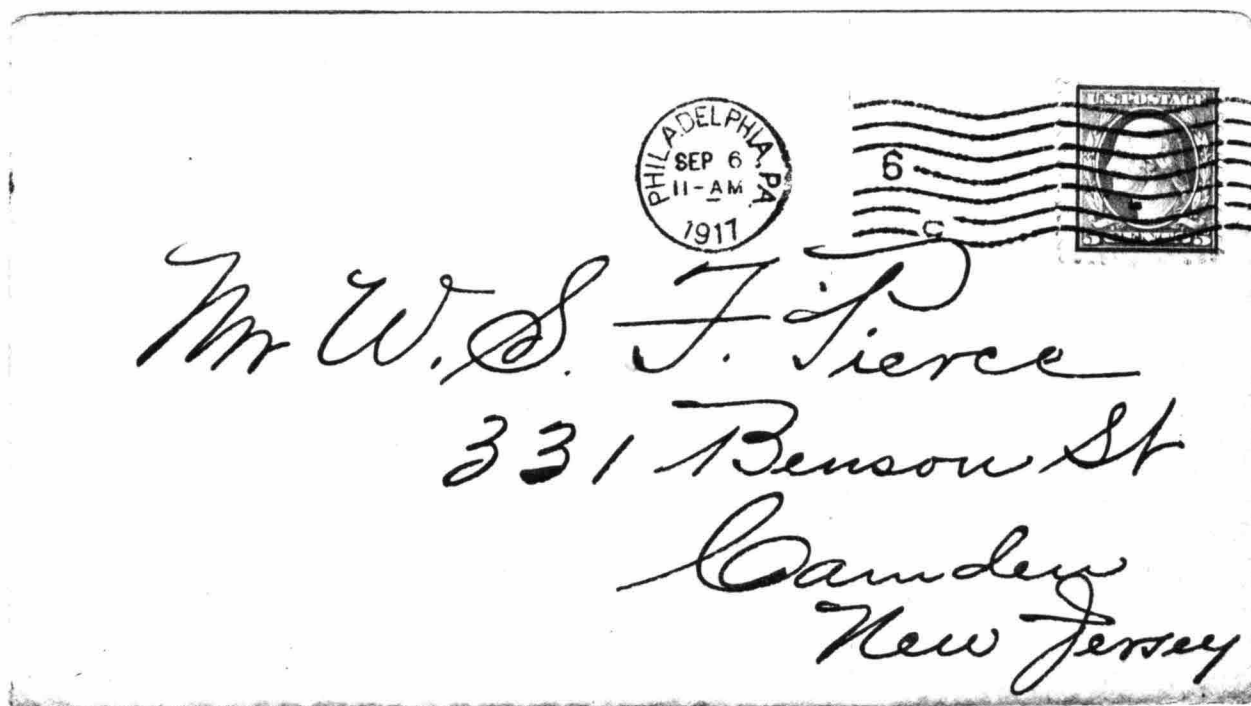 PHILADELPHIA, PA
SEP 6
11-AM
1917
6
C
U.S. POSTAGE
Mr W. S. F. Pierce
331 Benson St
Camden
New Jersey